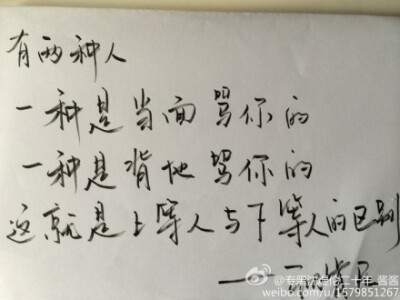 有两种人
一种是当面骂你的
一种是背地骂你的
这就是上等人与下等人的区别
weibo.com/u/1579851267